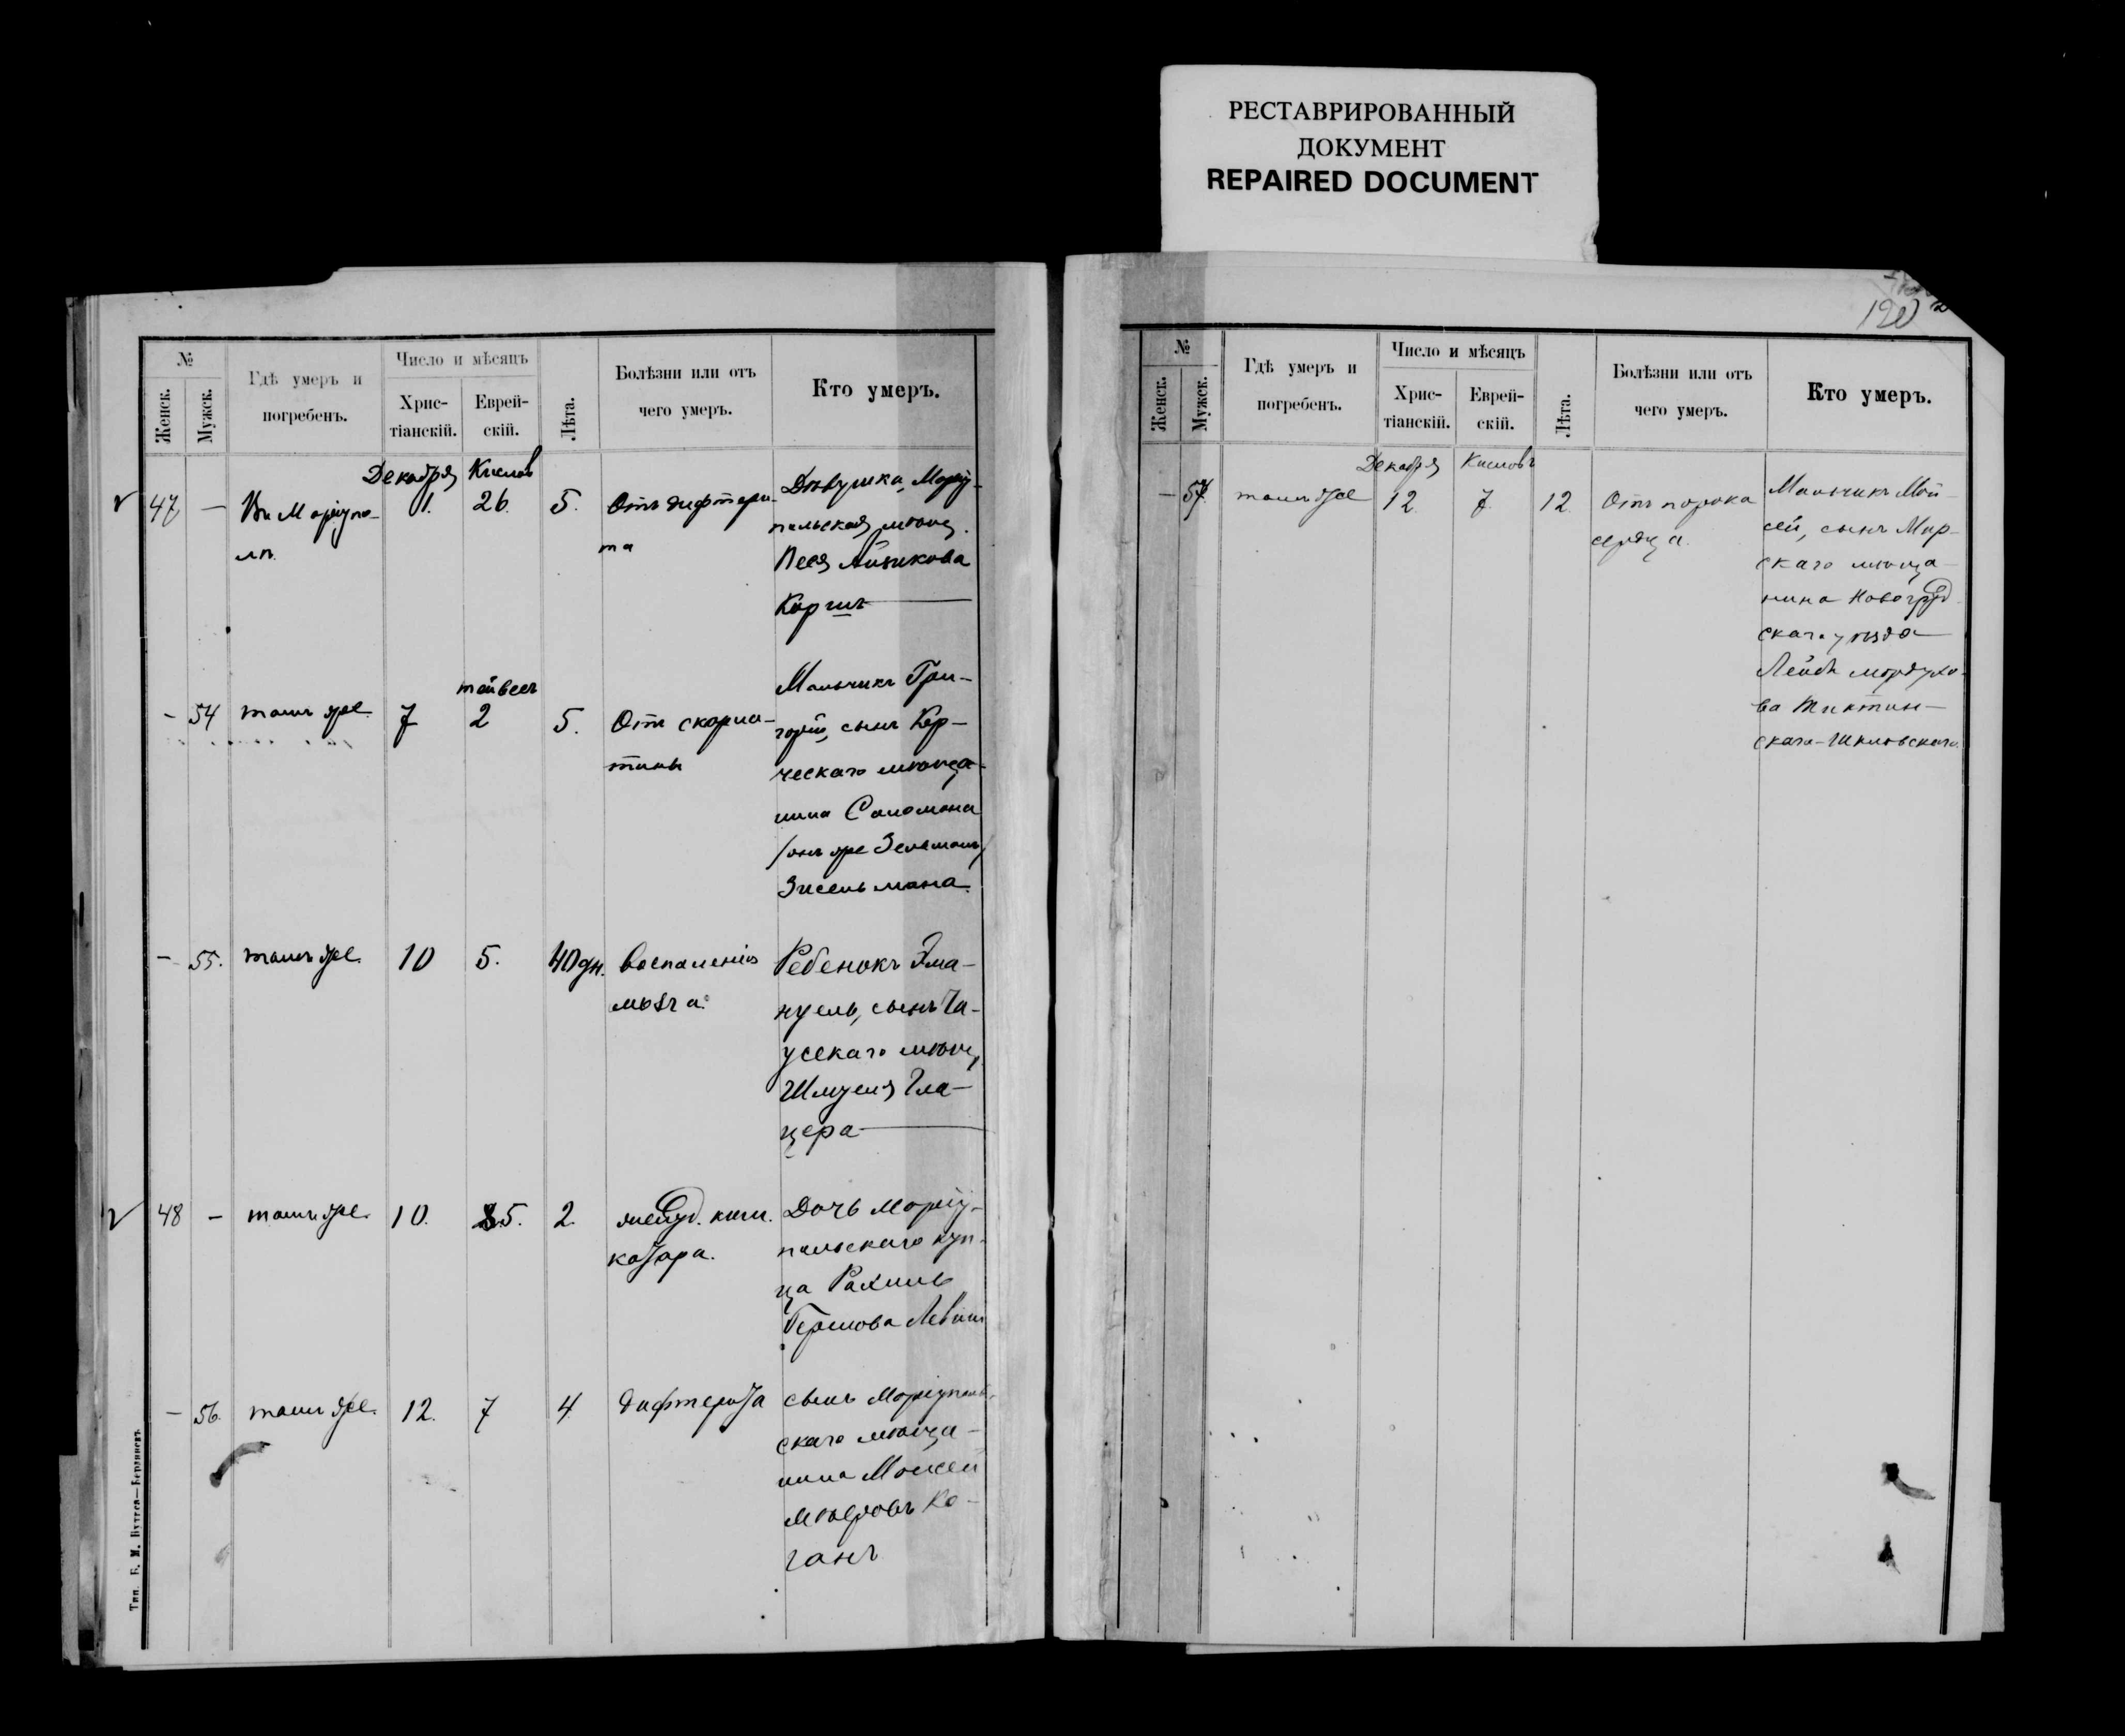 РЕСТАВРИРОВАННЫЙ
ДОКУМЕНТ
REPAIRED DOCUMENT
№
Женск.
Мужск.
Гдѣ умеръ и
погребенъ.
Число и мѣсяцъ
Хрис-
тіанскій.
Еврей-
скій.
Лѣта.
Болѣзни или отъ
чего умеръ.
Кто умеръ.
Декабря Кислов
47 — Въ Маріупо-
лѣ.
1. 26. 5.
Отъ дифтери-
та
Дѣвушка, Маріу-
польская мѣщ.
Песя Айзикова
Коргин
тайвесъ
— 54 тамъ же. 7 2 5.
Отъ скарла-
тины
Мальчикъ Гри-
горій, сынъ Кер-
ческаго мѣща-
нина Соломона
/онъ же Зельманъ/
Зисельмана.
— 55. тамъ же. 10 5. 40 дн.
Воспаленія
мозга.
Ребенокъ Эма-
нуель, сынъ Ча-
усскаго мѣщ.
Шмуеля Гла-
цера
48 — тамъ же. 10. 5. 2.
желуд. киш.
катара.
Дочь Маріу-
польскаго куп-
ца Рахиль
Гершова Левин
— 56. тамъ же. 12. 7 4
дифтерита
сынъ Маріуполь-
скаго мѣща-
нина Моисей
Мееровъ Ко-
ганъ
Тип. Б. М.
120
№
Женск.
Мужск.
Гдѣ умеръ и
погребенъ.
Число и мѣсяцъ
Хрис-
тіанскій.
Еврей-
скій.
Лѣта.
Болѣзни или отъ
чего умеръ.
Кто умеръ.
Декабря Кисловъ
— 57. тамъ же 12. 7. 12.
Отъ порока
сердца.
Мальчикъ Мой-
сей, сынъ Мир-
скаго мѣща-
нина Новогруд-
скаго уѣзда
Лейба Мордухо-
ва Тиктин-
скаго-Шкловскаго.